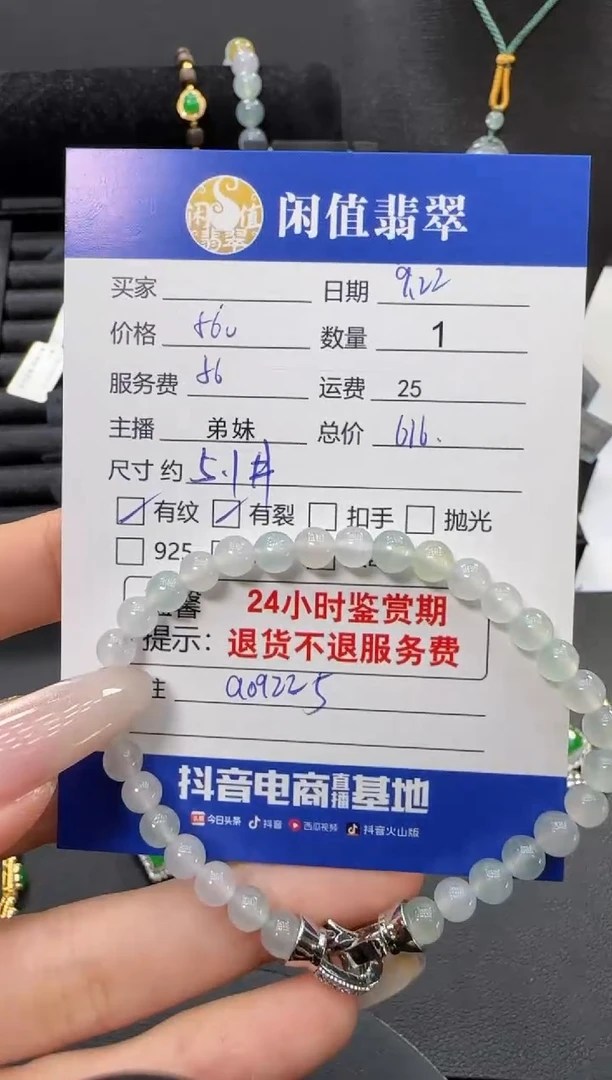 闲值翡翠
闲值翡翠
买家 日期 9.22
价格 560 数量 1
服务费 56 运费 25
主播 弟妹 总价 616.
尺寸 约 5.1#
有纹 有裂 扣手 抛光
925
馨 24小时鉴赏期
提示： 退货不退服务费
注 a09225
抖音电商直播基地
今日头条 抖音 西瓜视频 抖音火山版